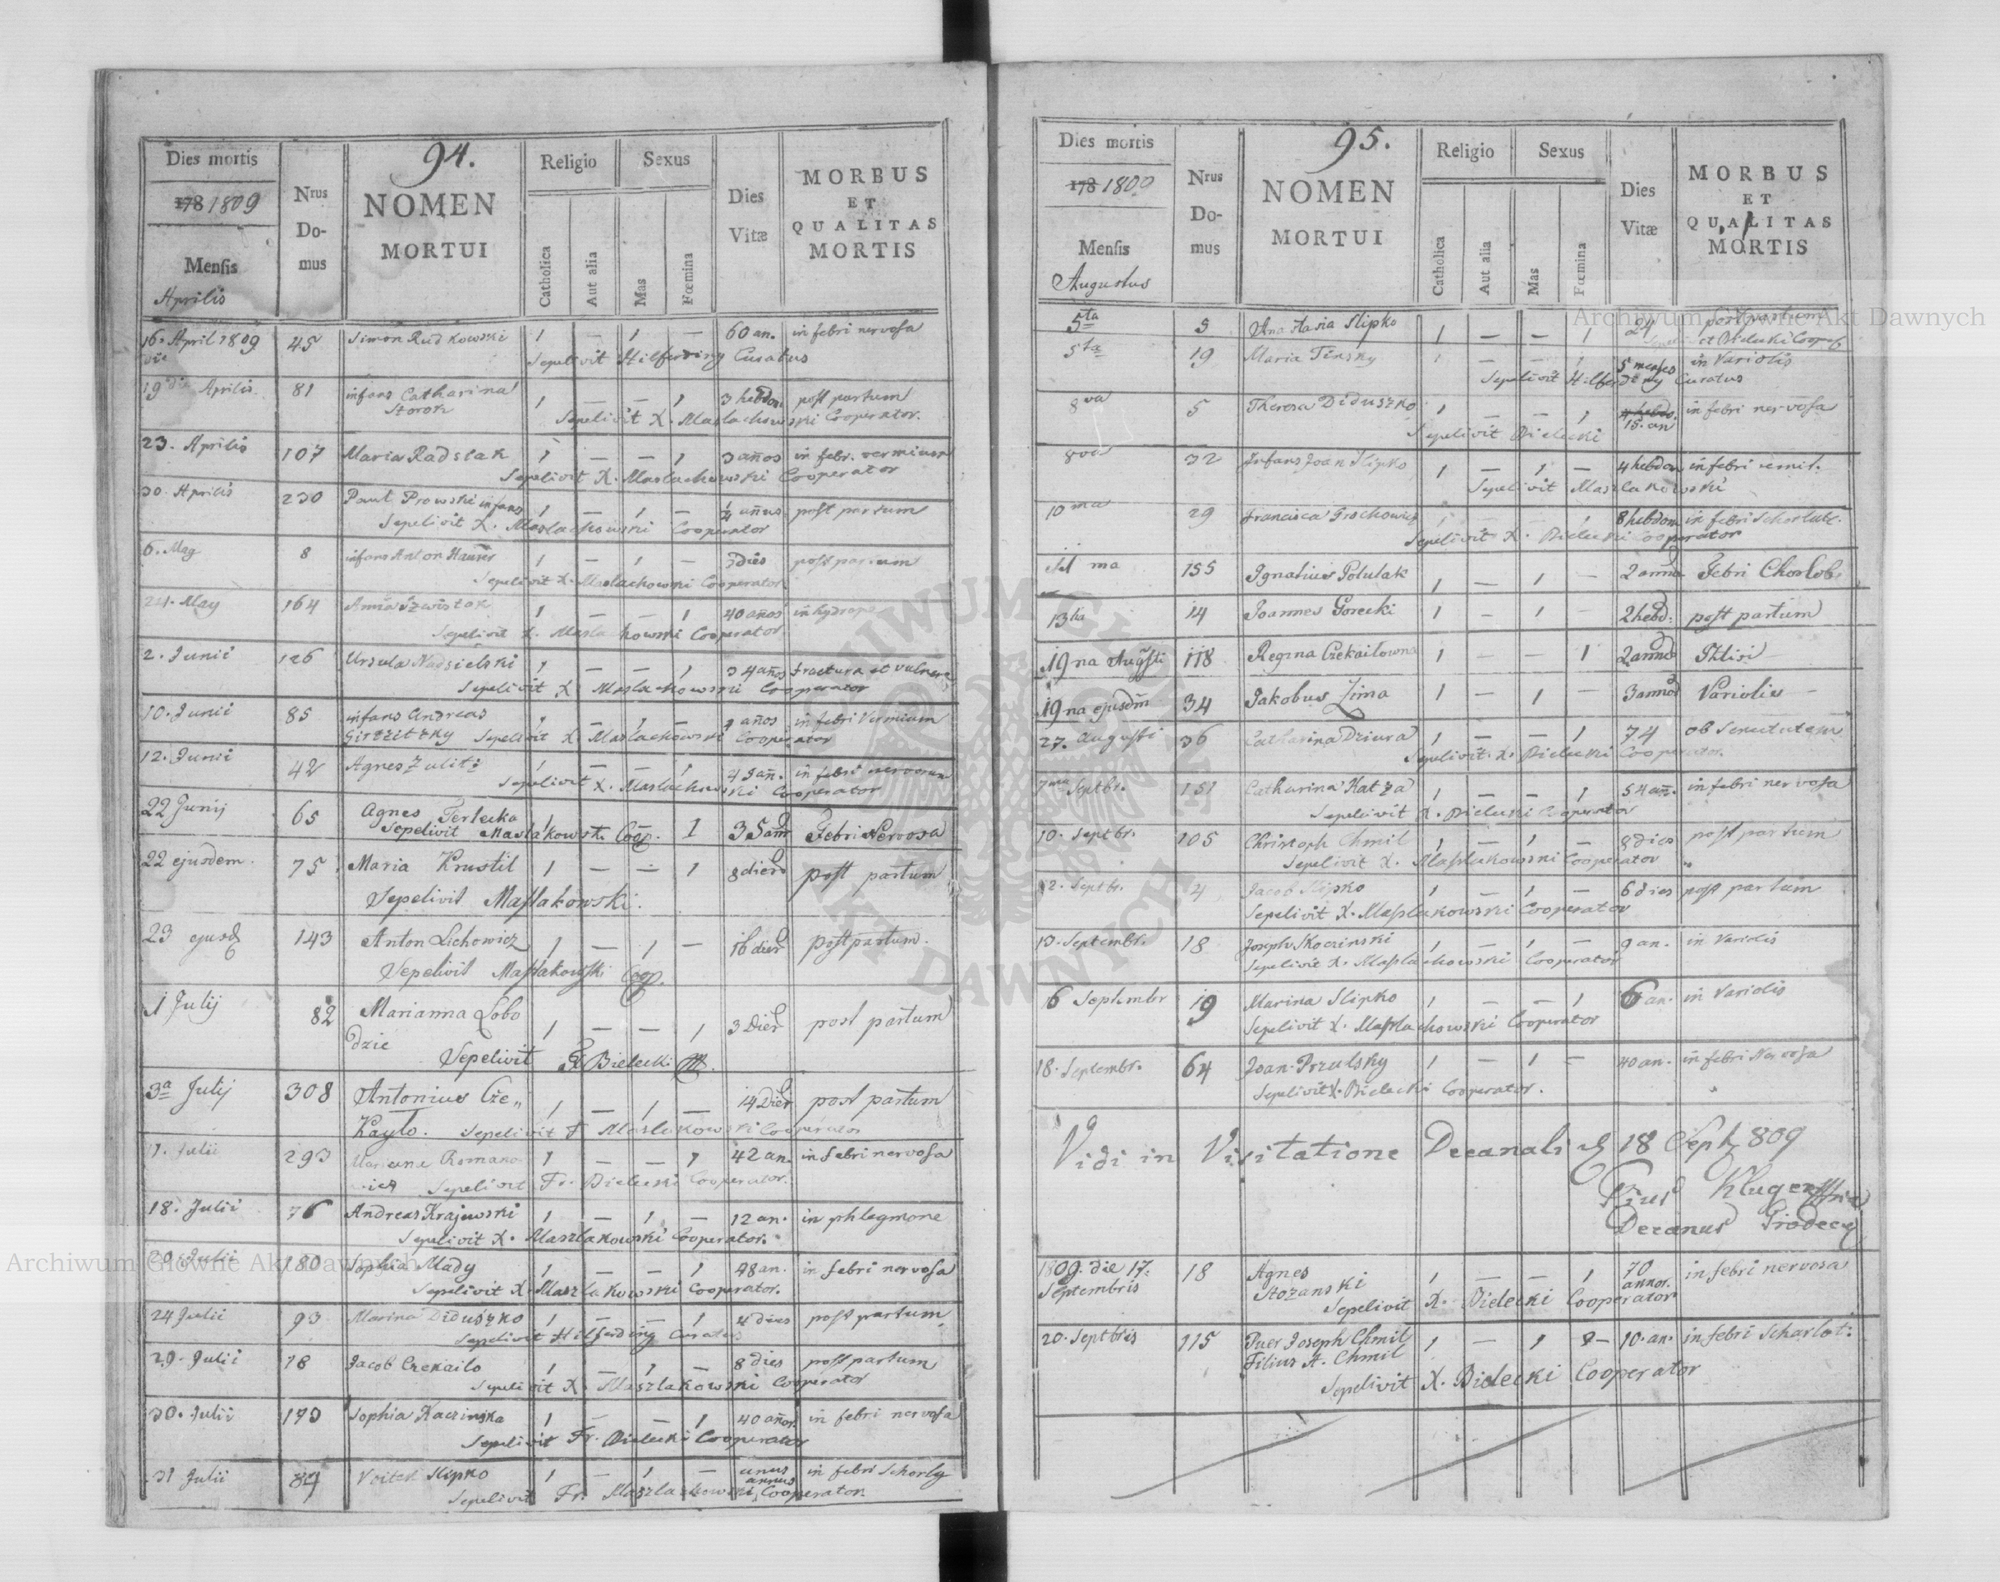 94.
Dies mortis
178 1809
Mensis
Aprilis
Nrus Domus
NOMEN MORTUI
Religio
Catholica
Aut alia
Sexus
Mas
Fœmina
Dies Vitæ
MORBUS ET QUALITAS MORTIS
16. April 1809 45 Simon Rudkowski 1 — 1 — 60 an. in febri nervosa
Sepelivit Hilferding Curatus
19 Aprilis 81 infans Catharina 1 — — 1 3 hebdom. post partum
Storok Sepelivit X. Maslachowski Cooperator.
23. Aprilis 107 Maria Radslak 1 — — 1 3 años in febri
Sepelivit X. Maslachowski Cooperator
30. Aprilis 230 Paul Prowski infans 1 — 1 — ¼ añus post partum
Sepelivit X. Maslachowski Cooperator
6. May 8 infans Anton Hauser 1 — 1 — dies post partum
Sepelivit X. Maslachowski Cooperator
24. May 164 Anna Szwistak 1 — — 1 40 años in hydrope
Sepelivit X. Maslachowski Cooperator.
2. Junii 126 Ursula Nadsielski 1 — — 1 34 años fractura et vulnere
Sepelivit X. Maslachowski Cooperator
10. Junii 85 infans Andreas 1 — 1 — años in febri Vermium
Sepelivit X. Maslachowski Cooperator
12. Junii 42 Agnes 1 — — 1 in febri nervosa
Sepelivit X. Maslachowski Cooperator
22 Junij 65 Agnes Terlecka 1 — — 1 35 ann Febri Nervosa
Sepelivit Maslakowski Coop.
22 ejusdem. 75 Maria Krustil 1 — — 1 8 dier post partum
Sepelivit Maslakowski.
23 ejusd 143 Anton Lichowicz 1 — 1 — 16 dier post partum.
Sepelivit Maslakowski Coop.
1 Julij 82 Marianna Lobo 1 — — 1 3 Dier post partum
dzic Sepelivit F. Bielecki
3a Julij 308 Antonius Cze„ 1 — 1 — 14 Dier post partum
Kaylo. Sepelivit F Maslakowski Cooperator
Julii 293 Marianna Romano 1 — — 1 42 an. in febri nervosa
wicz Sepelivit Fr. Bielecki Cooperator.
18. Julii 76 Andreas Krajewski 1 — 1 — 12 an. in phlegmone
Sepelivit X. Maszlakowski Cooperator.
20. Julii 180 Sophia Mady 1 — — 1 48 an. in febri nervosa
Sepelivit X. Maszlakowski Cooperator.
24 Julii 93 Marina Diduszko 1 — — 1 4 dies post partum
Sepelivit Hilferding Curatus
29. Julii 18 Jacob Czekailo 1 — 1 — 8 dies post partum
Sepelivit X. Maszlakowski Cooperator
30. Julii 173 Sophia Kaczinska 1 — — 1 40 años in febri nervosa
Sepelivit Fr. Bielecki Cooperator
31 Julii 87 Voitek Slipko 1 — 1 — unus annus in febri Schorly
Sepelivit Fr. Maszlakowski Cooperator.
95.
Dies mortis
178 1809
Mensis
Augustus
Nrus Domus
NOMEN MORTUI
Religio
Catholica
Aut alia
Sexus
Mas
Fœmina
Dies Vitæ
MORBUS ET QUALITAS MORTIS
5ta 3 Anastasia Slipko 1 — — 1 24 post partum
Bielecki Coop
5ta 19 Maria Tinsky 1 — — 1 5 menses in Variolis
Sepelivit Hilferding Curatus
8va 5 Theresa Diduszko 1 — — 1 15. an in febri nervosa
Sepelivit Bielecki
8va 32 Infans Joan Slipko 1 — 1 — 4 hebdom in febri
Sepelivit Maszlakowski
10ma 29 Francisca Prochowicz 1 — — 1 8 hebdom in febri Schorlatt.
Sepelivit X. Bielecki Cooperator
11 ma 155 Ignatius Polulak 1 — 1 — 2 annor Febri Chorlob.
13tia 14 Joannes Gorecki 1 — 1 — 2 hebd: post partum
19na Augsti 118 Regina Czekailowna 1 — — 1 2 annor Phtisi
19na ejusdm 34 Jakobus Zima 1 — 1 — 3 annor Variolis —
27. Augusti 36 Catharina Dziura 1 — — 1 74 ob Senectutem
Sepelivit X. Bielecki Cooperator.
7ma Septbr. 151 Catharina Katza 1 — — 1 54 añ. in febri nervosa
Sepelivit X. Bielecki Cooperator
10. Septbr. 105 Christoph Chmil 1 — 1 — 8 dies post partum
Sepelivit X. Maszlakowski Cooperator
12. Septbr. 4 Jacob Slipko 1 — 1 — 6 dies post partum
Sepelivit X. Maszlakowski Cooperator
13. Septembr. 18 Joseph Skoczinski 1 — 1 — 9 an. in Variolis
Sepelivit X. Maszlachowski Cooperator
6 Septembr 19 Marina Slipko 1 — — 1 6 an. in Variolis
Sepelivit X. Maszlachowski Cooperator
18. Septembr. 64 Joan Przulsky 1 — 1 — 40 an. in febri Nervosa
Sepelivit X. Bielecki Cooperator.
Vidi in Visitatione Decanali d 18 Sept 809
Pius Kluger
Decanus Grodecen
1809. die 17. Septembris 18 Agnes Stozanski 1 — — 1 70 annor. in febri nervosa
Sepelivit X. Bielecki Cooperator
20. Septbris 115 Puer Joseph Chmil 1 — 1 — 10. an. in febri Scharlot:
Filius A. Chmil
Sepelivit X. Bielecki Cooperator
Archiwum Główne Akt Dawnych
Archiwum Główne Akt Dawnych
ARCHIWUM GŁÓWNE AKT DAWNYCH